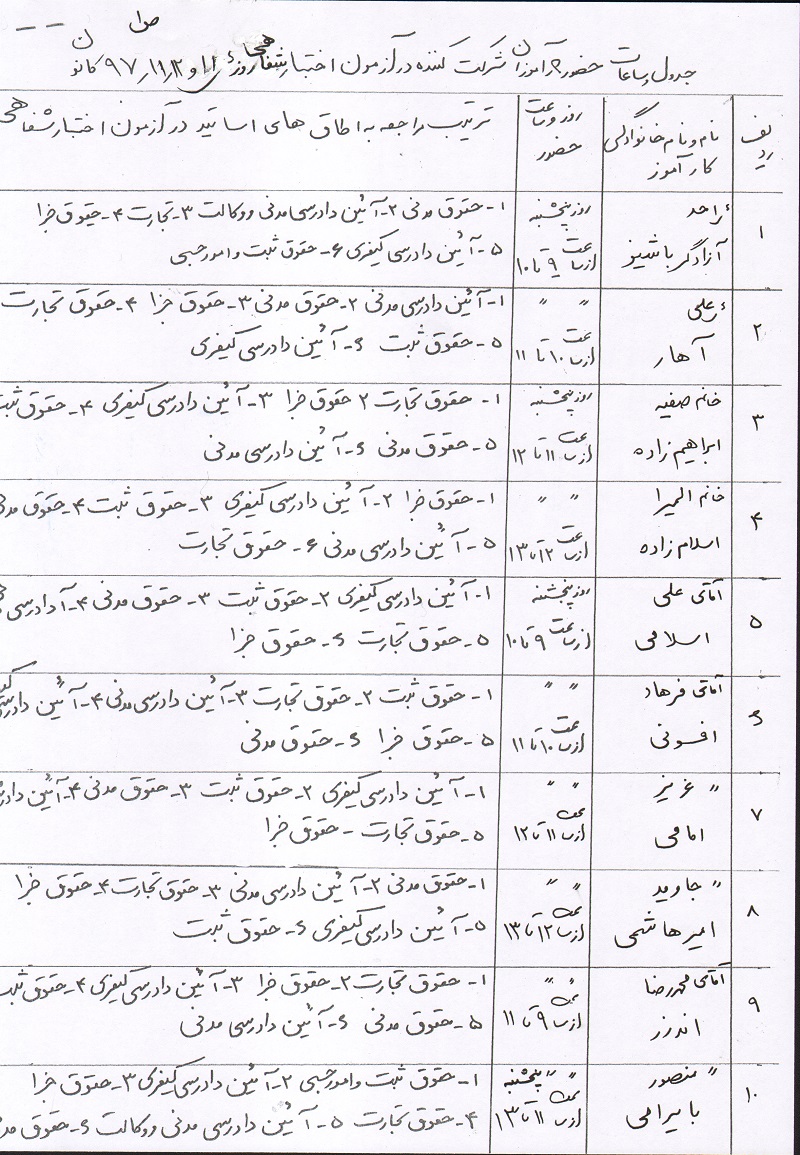 ص ۱
جدول ساعات حضور کارآموزان شرکت کننده در آزمون اختبار شفاهی روز ۱۱ و ۱۲/۱۱/۹۷ کانون
ردیف
نام و نام خانوادگی کارآموز
روز و ساعت حضور
ترتیب مراجعه به اطاق های اساتید در آزمون اختبار شفاهی
۱
احد آزادگر باشیز
روز پنجشنبه از ساعت ۹ تا ۱۰
۱- حقوق مدنی ۲- آئین دادرسی مدنی و وکالت ۳- تجارت ۴- حقوق جزا
۵- آئین دادرسی کیفری ۶- حقوق ثبت و امور حسبی
۲
علی آهار
" " از ساعت ۱۰ تا ۱۱
۱- آئین دادرسی مدنی ۲- حقوق مدنی ۳- حقوق جزا ۴- حقوق تجارت
۵- حقوق ثبت ۶- آئین دادرسی کیفری
۳
خانم صفیه ابراهیم زاده
روز پنجشنبه از ساعت ۱۱ تا ۱۲
۱- حقوق تجارت ۲ حقوق جزا ۳- آئین دادرسی کیفری ۴- حقوق ثبت
۵- حقوق مدنی ۶- آئین دادرسی مدنی
۴
خانم المیرا اسلام زاده
" " از ساعت ۱۲ تا ۱۳
۱- حقوق جزا ۲- آئین دادرسی کیفری ۳- حقوق ثبت ۴- حقوق مدنی
۵- آئین دادرسی مدنی ۶- حقوق تجارت
۵
آقای علی اسلامی
روز پنجشنبه از ساعت ۹ تا ۱۰
۱- آئین دادرسی کیفری ۲- حقوق ثبت ۳- حقوق مدنی ۴- آ دادرسی
۵- حقوق تجارت ۶- حقوق جزا
۶
آقای فرهاد افسونی
" " از ساعت ۱۰ تا ۱۱
۱- حقوق ثبت ۲- حقوق تجارت ۳- آئین دادرسی مدنی ۴- آئین دادرسی
۵- حقوق جزا ۶- حقوق مدنی
۷
" عزیز امامی
" " از ساعت ۱۱ تا ۱۲
۱- آئین دادرسی کیفری ۲- حقوق ثبت ۳- حقوق مدنی ۴- آئین داد
۵- حقوق تجارت - حقوق جزا
۸
" جاوید امیرهاشمی
" " از ساعت ۱۲ تا ۱۳
۱- حقوق مدنی ۲- آئین دادرسی مدنی ۳- حقوق تجارت ۴- حقوق جزا
۵- آئین دادرسی کیفری ۶- حقوق ثبت
۹
آقای محمدرضا اندرز
" " از ساعت ۹ تا ۱۱
۱- حقوق تجارت ۲- حقوق جزا ۳- آئین دادرسی کیفری ۴- حقوق ثبت
۵- حقوق مدنی ۶- آئین دادرسی مدنی
۱۰
" منصور بایرامی
" " پنجشنبه از ساعت ۱۱ تا ۱۳
۱- حقوق ثبت و امور حسبی ۲- آئین دادرسی کیفری ۳- حقوق جزا
۴- حقوق تجارت ۵- آئین دادرسی مدنی و وکالت ۶- حقوق مد